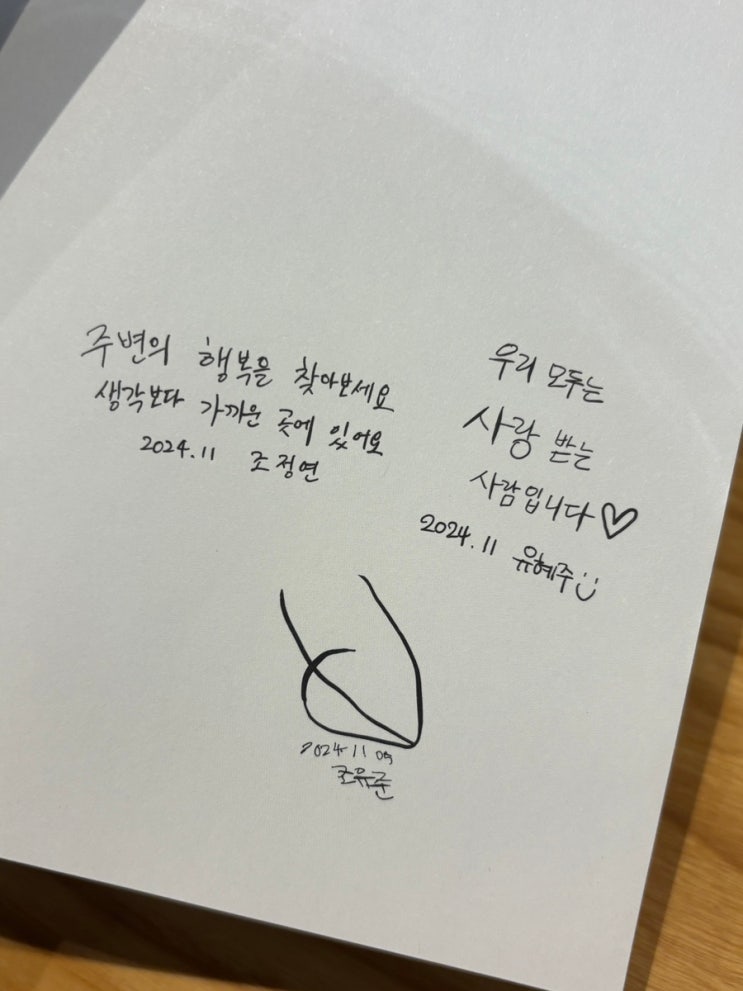 주변의 행복을 찾아보세요
생각보다 가까운 곳에 있어요
2024.11 조정연
우리 모두는
사랑 받는
사람입니다♡
2024.11 유혜주
2024.11 09
조유준